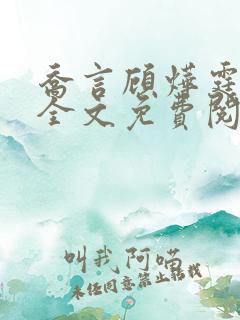 乔言顾燁霆
全文免費閱
叫我阿喵
未经同意禁止转载